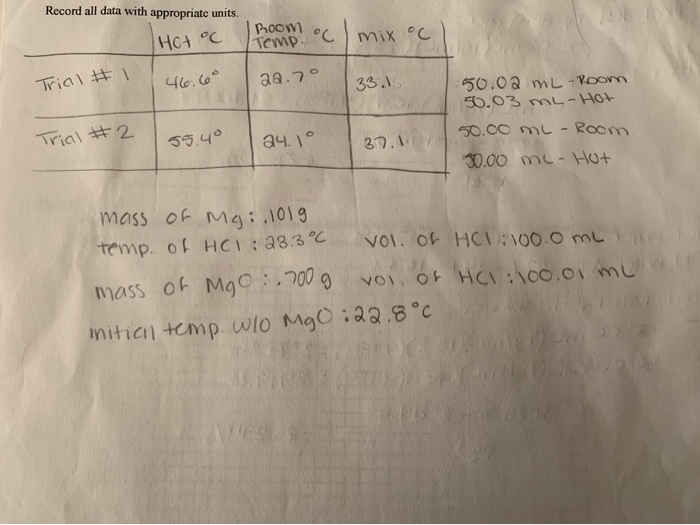 Record all data with appropriate units.
Hot °C Room Temp. °C mix °C
Trial #1 46.6° 22.7° 33.1 50.02 mL - Room
50.03 mL - Hot
Trial #2 55.4° 24.1° 37.1 50.00 mL - Room
50.00 mL - Hot
mass of Mg: .101g
temp. of HCl : 23.3°C vol. of HCl : 100.0 mL
mass of MgO : .700 g vol. of HCl : 100.01 mL
initial temp. w/o MgO : 22.8°C